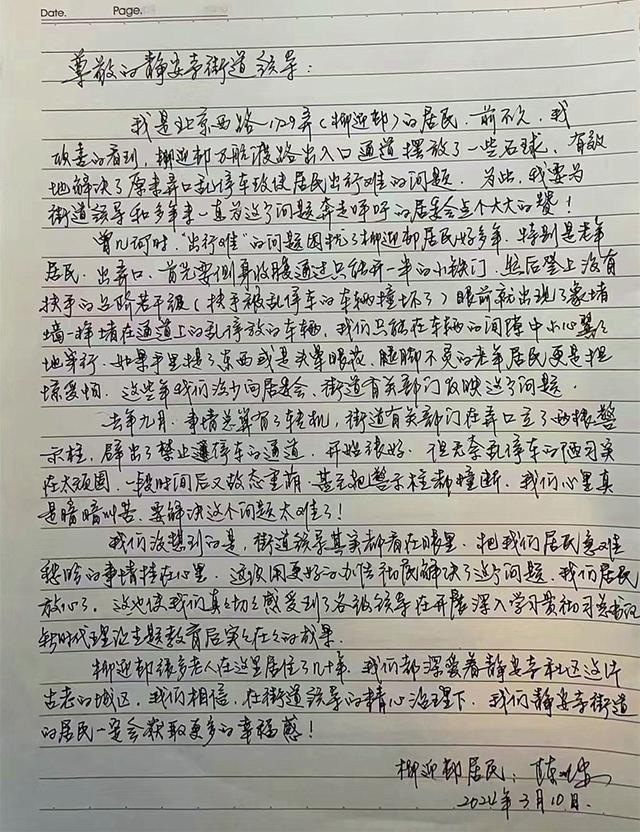 Date. Page.
尊敬的静安寺街道领导：
我是北京西路1729弄（柳迎邨）的居民．前不久，我
欣喜的看到，柳迎邨万航渡路出入口通道摆放了一些石球，有效
地解决了原来弄口乱停车致使居民出行难的问题．为此，我要为
街道领导和多年来一直为这个问题奔走呼吁的居委会点个大大的赞！
曾几何时，“出行难”的问题困扰了柳迎邨居民好多年．特别是老年
居民．出弄口，首先要侧身收腹通过只能开一半的小铁门，然后登上没有
扶手的台阶若干级（扶手被乱停车的车辆撞坏了）眼前就出现了象堵
墙一样堵在通道上的乱停放的车辆，我们只能在车辆的间隙中小心翼々
地穿行．如果手里提了东西或是头晕眼花、腿脚不灵的老年居民更是担
惊受怕．这些年我们没少向居委会、街道有关部门反映这个问题．
去年九月．事情总算有了转机，街道有关部门在弄口立了两根警
示柱，辟出了禁止停车的通道．开始很好．但无奈乱停车的陋习实
在太顽固，一段时间后又故态重萌．甚至把警示柱都撞断．我们心里真
是暗暗叫苦．要解决这个问题太难了！
我们没想到的是，街道领导其实都看在眼里．把我们居民急难
愁盼的事情挂在心里．还设用更好的办法彻底解决了这个问题．我们居民
放心了．这也使我们真々切々感受到了各级领导在开展深入学习贯彻习总书记
新时代理论主题教育后实々在々的成果．
柳迎邨很多老人在这里居住了几十年．我们都深爱着静安寺社区这片
古老的城区．我们相信．在街道领导的精心治理下．我们静安寺街道
的居民一定会获取更多的幸福感！
柳迎邨居民：陈
2024年3月10日．